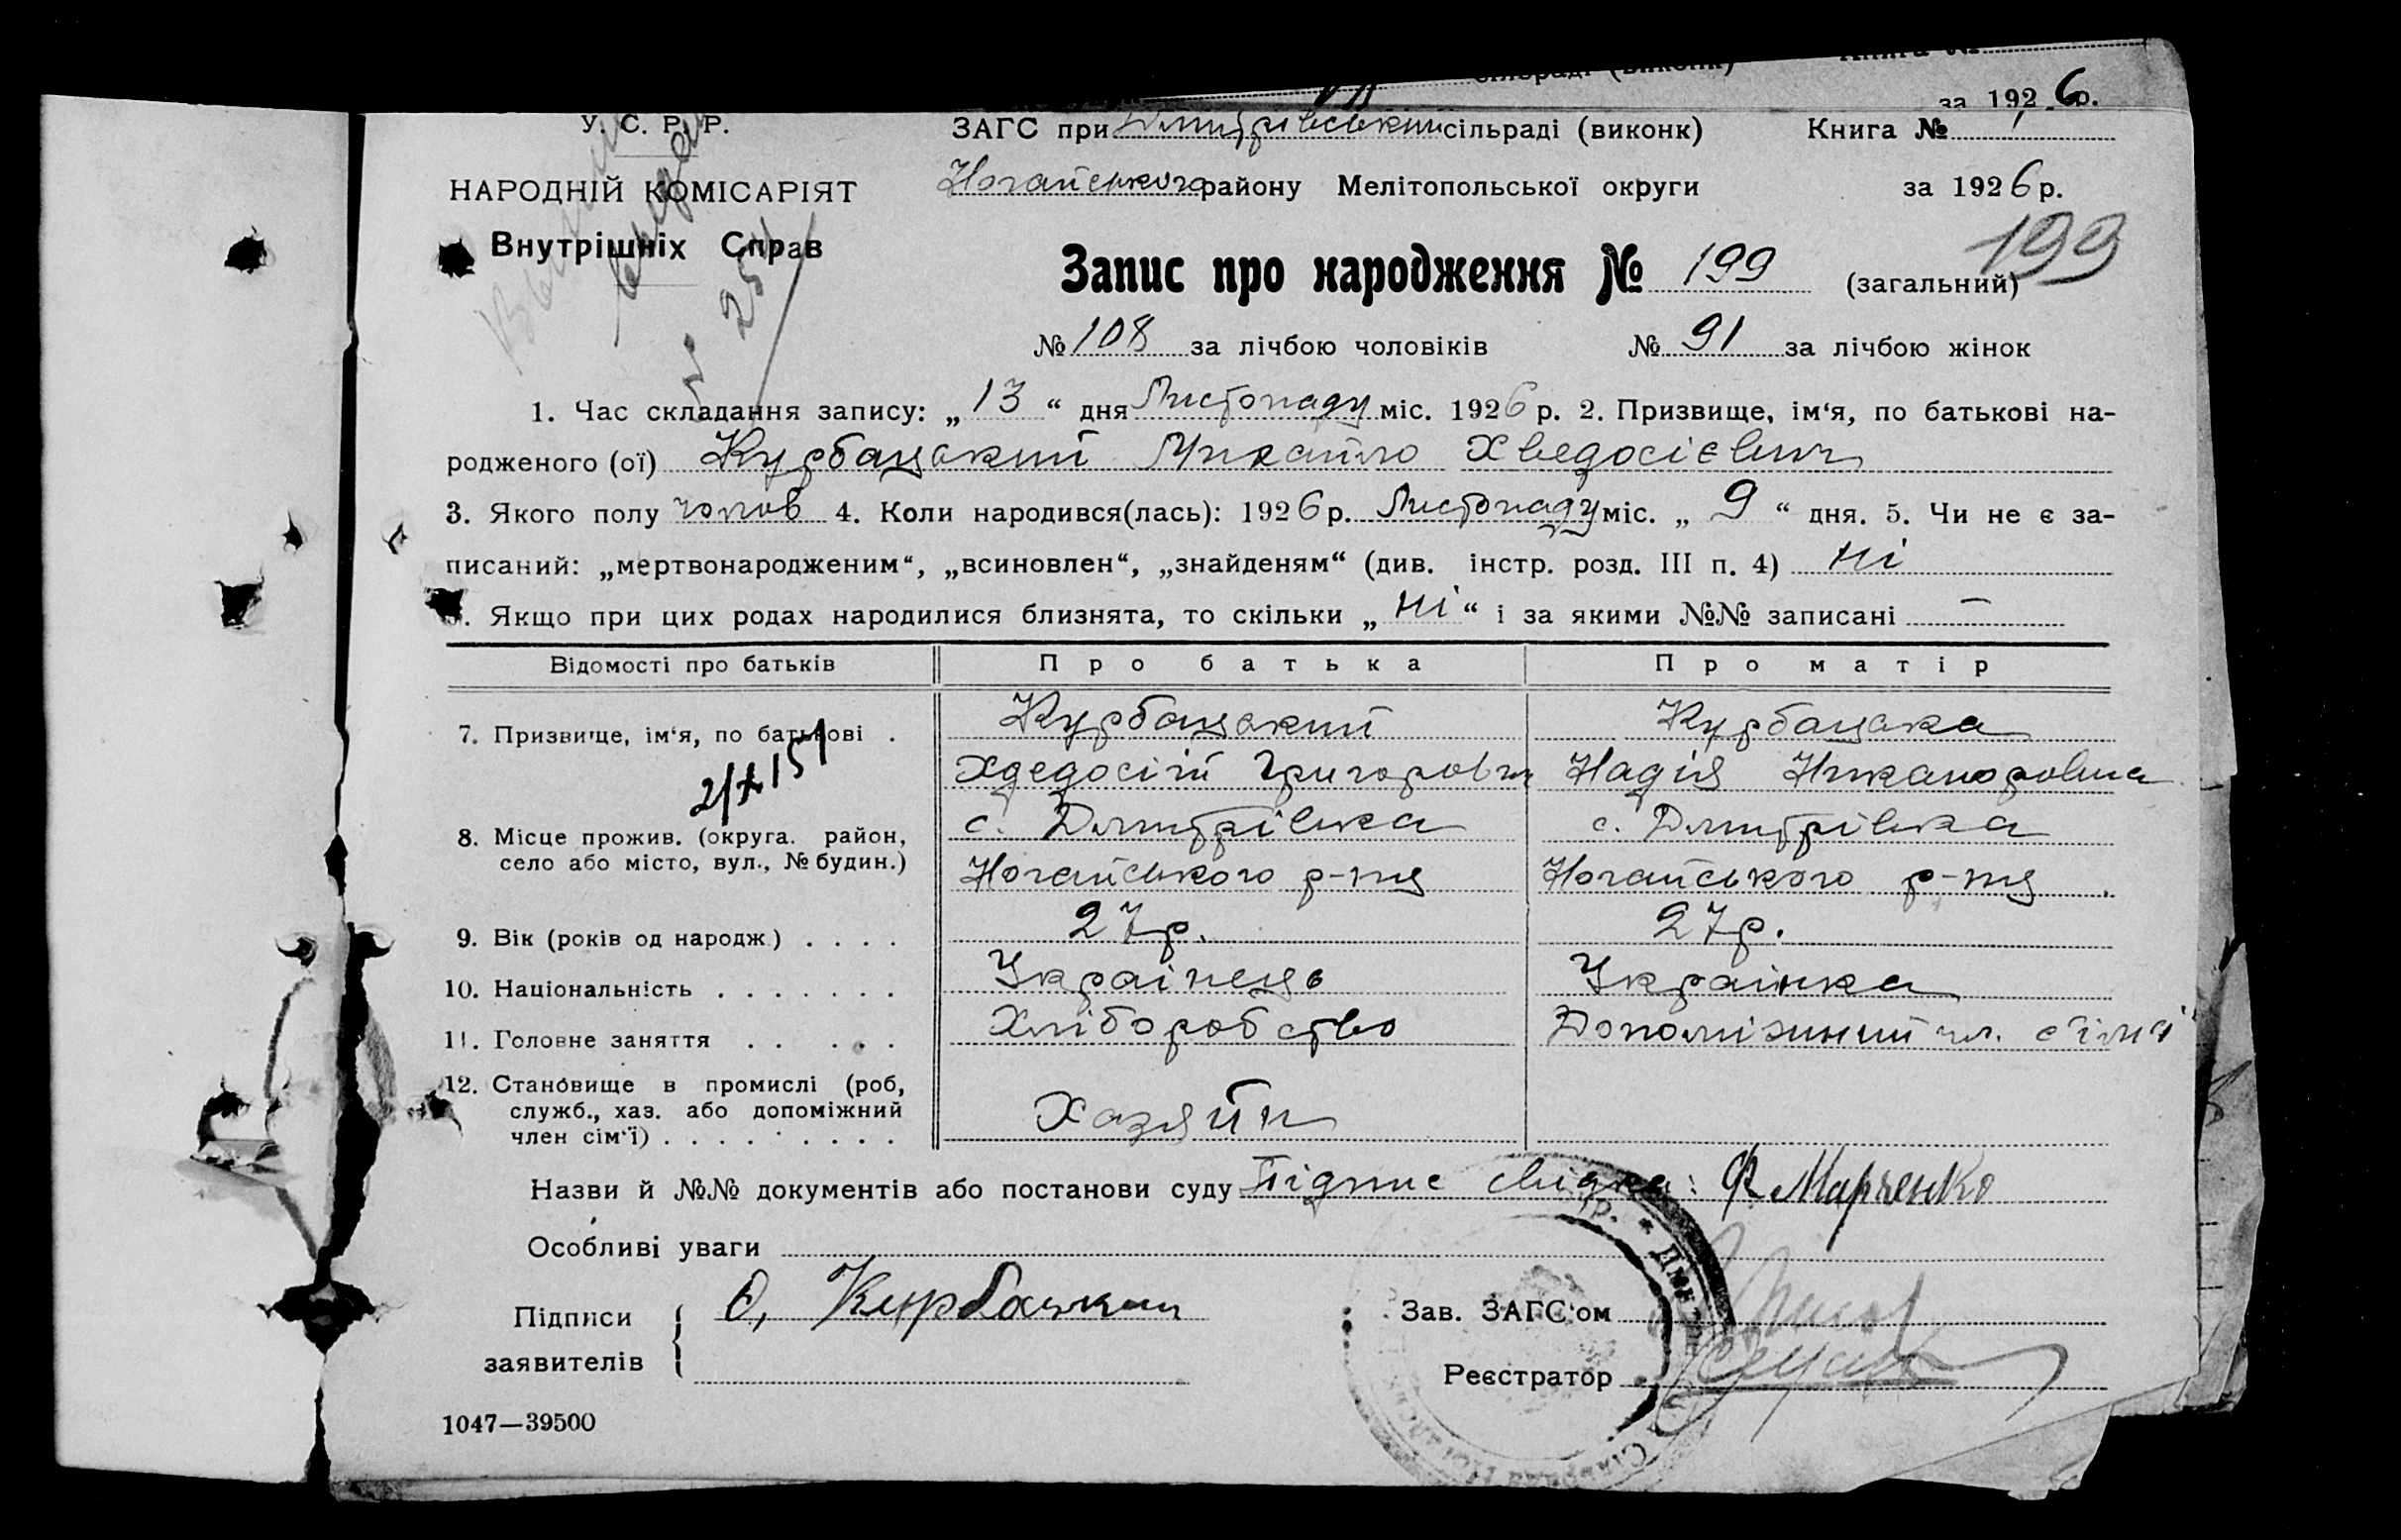 за 1926р.
У. С. Р. Р.
ЗАГС при Дмитрівський сільраді (виконк) Книга №
НАРОДНІЙ КОМІСАРІЯТ
Ногайського району Мелітопольської округи за 1926р.
Внутрішніх Справ
199
Запис про народження № 199 (загальний)
№ 108 за лічбою чоловіків № 91 за лічбою жінок
1. Час складання запису: „13“ дня Листопаду міс. 1926р. 2. Призвище, ім‘я, по батькові на-
родженого (ої) Курбацький Михайло Хведосієвич
3. Якого полу чолов 4. Коли народився(лась): 1926р. Листопаду міс. „9“ дня. 5. Чи не є за-
писаний: „мертвонародженим“, „всиновлен“, „знайденям“ (див. інстр. розд. III п. 4) ні
. Якщо при цих родах народилися близнята, то скільки „ні“ і за якими №№ записані —
Відомості про батьків Про батька Про матір
7. Призвище, ім‘я, по батькові . Курбацький Курбацька
Хдедосій Григорович Надія Никаноровна
8. Місце прожив. (округа. район, с. Дмитрівка с. Дмитрівка
село або місто, вул., № будин.) Ногайського р-ну Ногайського р-ну
9. Вік (років од народж) . . . . 27р. 27р.
10. Національність . . . . . . . Українець Українка
11. Головне заняття . . . . . Хліборобство Допоміжний чл. сімї
12. Становище в промислі (роб,
служб., хаз. або допоміжний Хазяйн
член сім‘ї) . . . . . . . . .
Назви й №№ документів або постанови суду Підпис свідка: Ф Марченко
Особливі уваги
Підписи О, Курбацький Зав. ЗАГС‘ом
заявителів Реєстратор
1047—39500